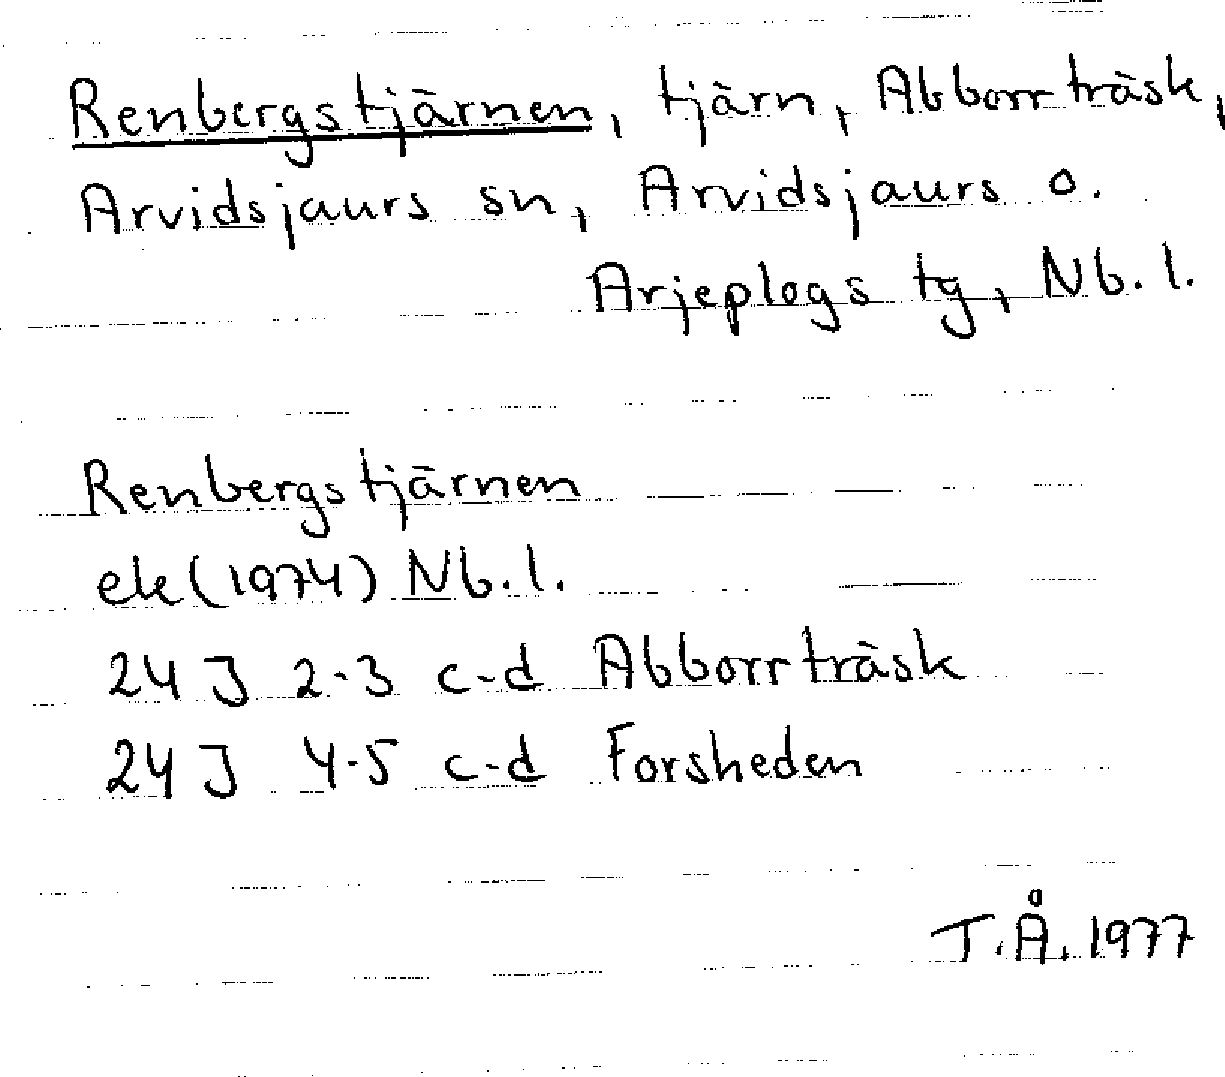 Renbergstjärnen, tjärn, Abborrträsk,
Arvidsjaurs sn, Arvidsjaurs o.
Arjeplogs tg, Nb. l.
Renbergstjärnen
ek (1974) Nb. l.
24 J 2-3 c-d Abborrträsk
24 J 4-5 c-d Forsheden
T.Å. 1977